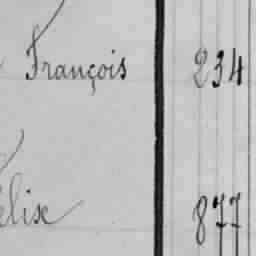 François 234
élix 877